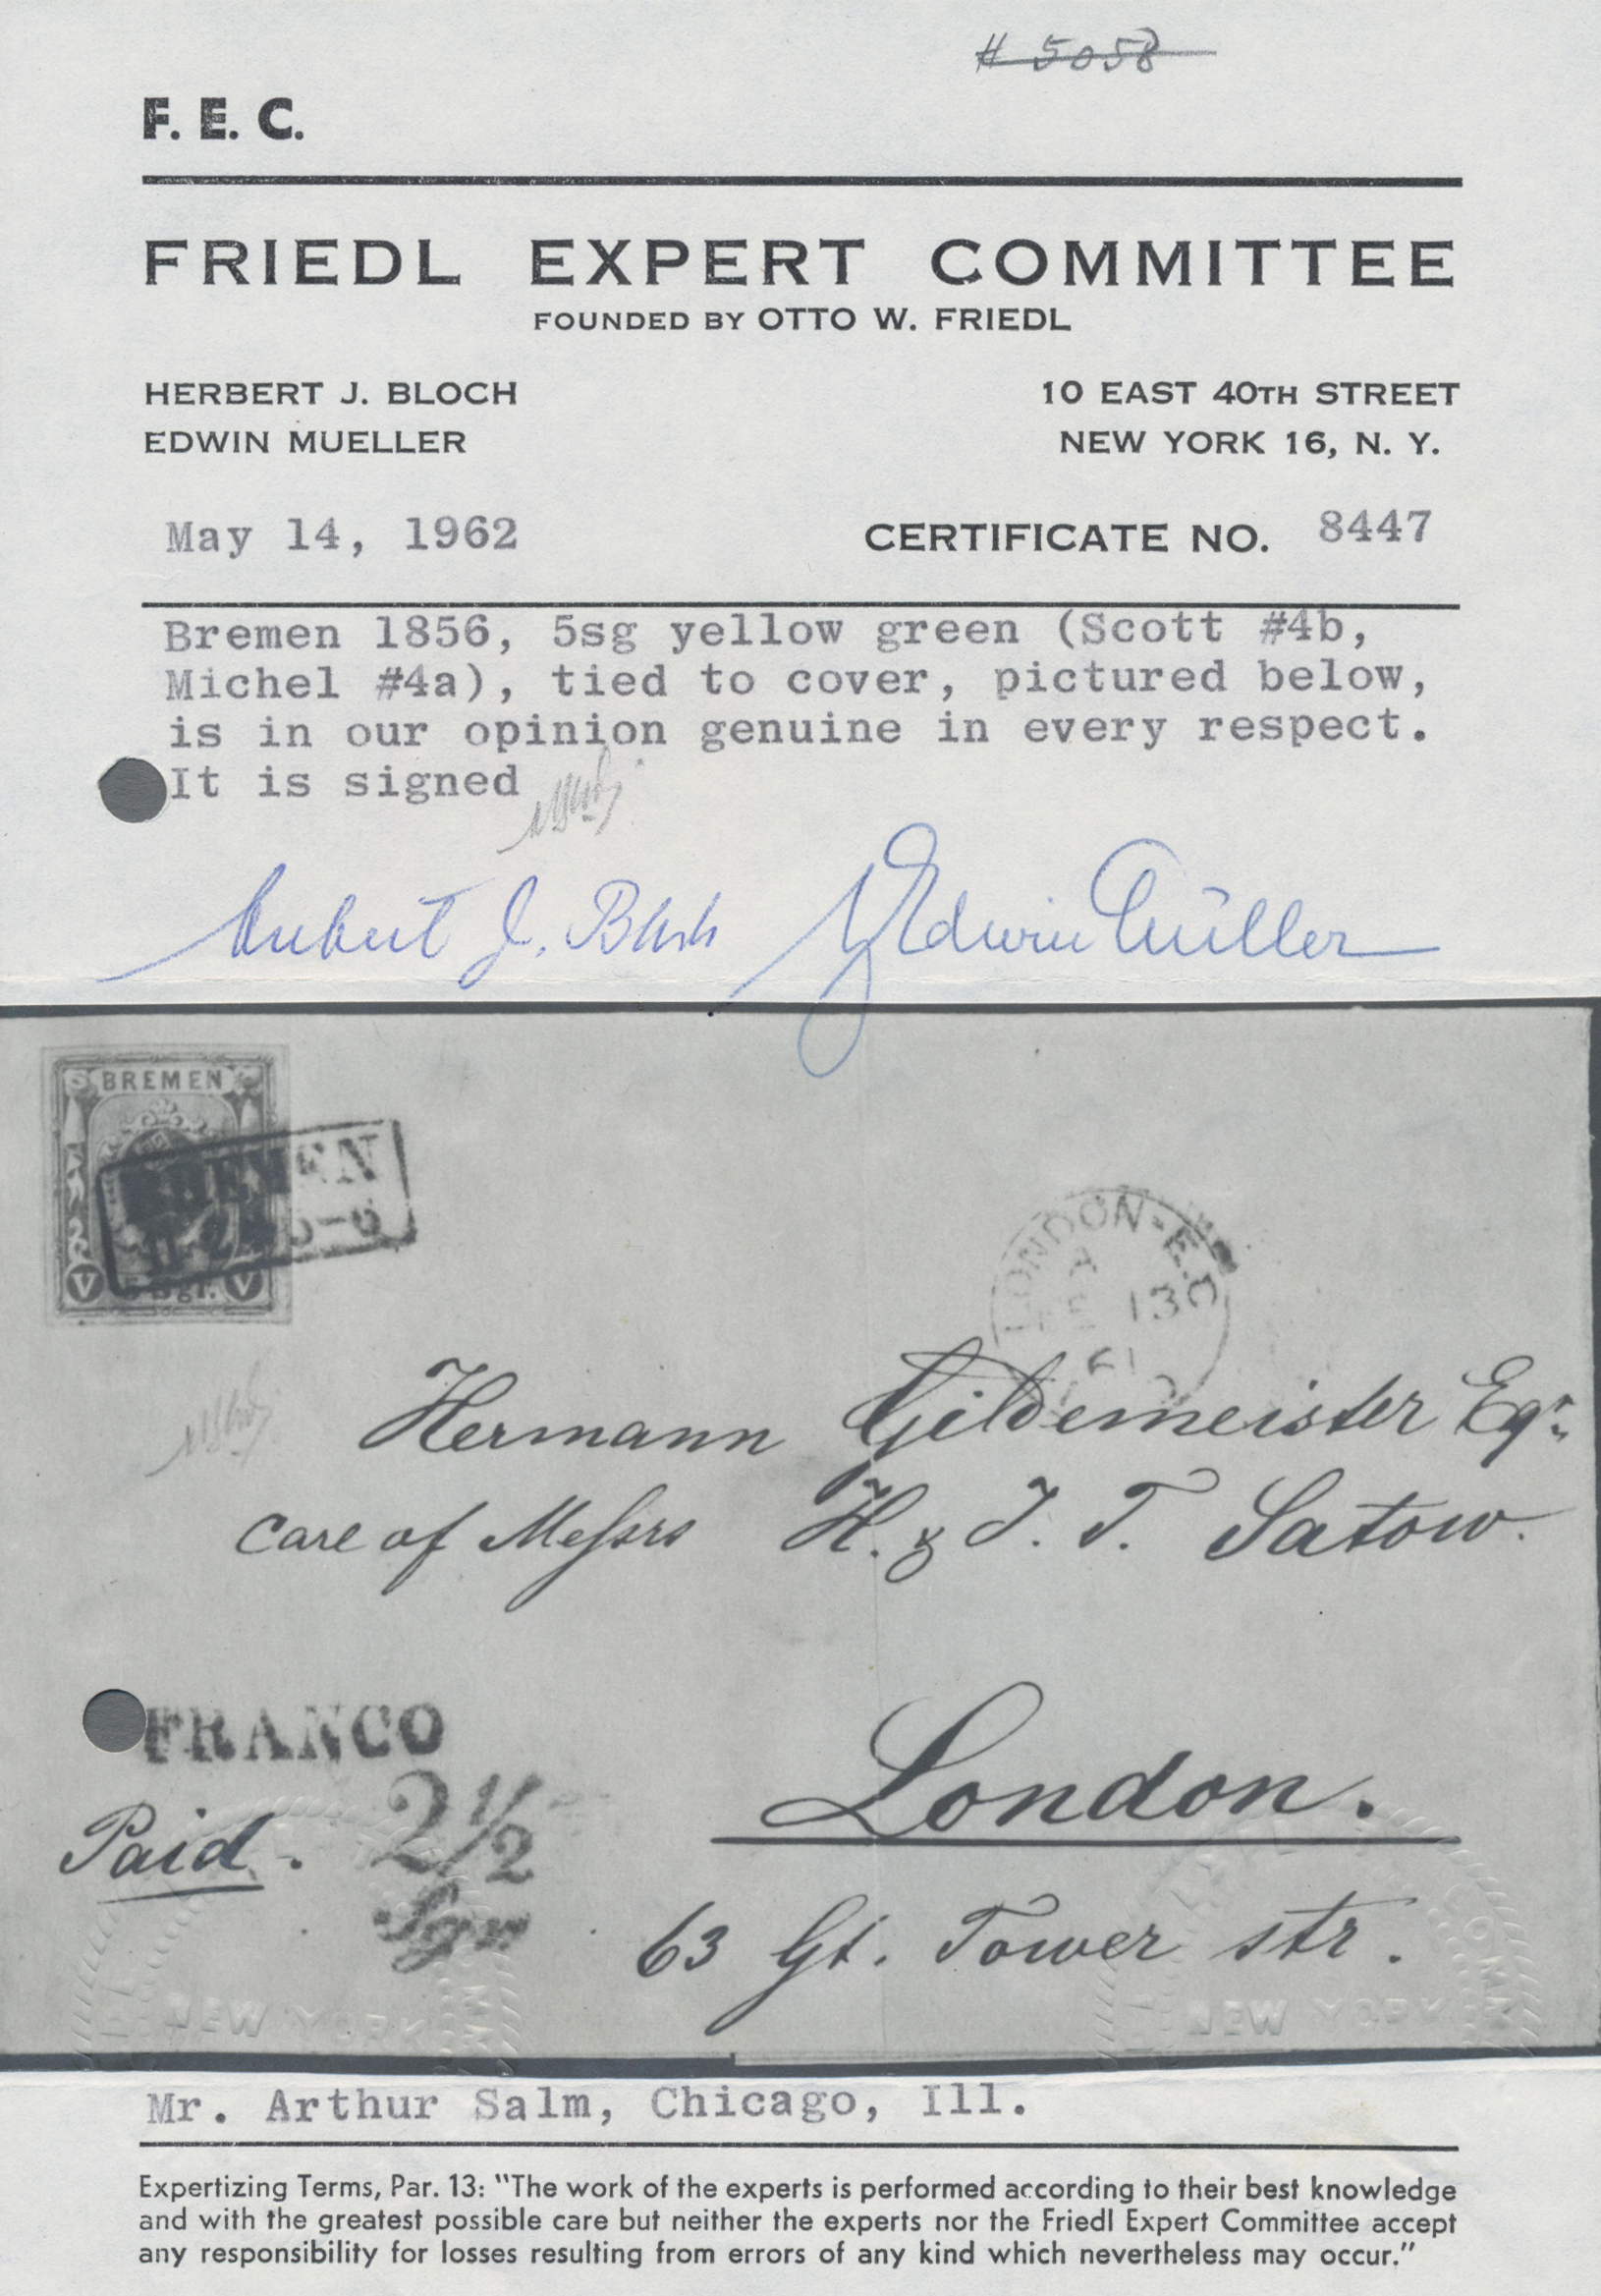 # 5058
F. E. C.
FRIEDL EXPERT COMMITTEE
FOUNDED BY OTTO W. FRIEDL
HERBERT J. BLOCH
10 EAST 40TH STREET
EDWIN MUELLER
NEW YORK 16, N. Y.
May 14, 1962
CERTIFICATE NO. 8447
Bremen 1856, 5sg yellow green (Scott #4b,
Michel #4a), tied to cover, pictured below,
is in our opinion genuine in every respect.
It is signed
Herbert J. Bloch
Edwin Müller
BREMEN
BREMEN
5-6
V Sgr. V
LONDON-E.C
13
61
Hermann Gildemeister Eqr.
Care of Messrs H. & J. T. Satow.
FRANCO
London.
Paid.
2½
Sgr
63 Gt. Tower str.
NEW YORK
NEW YORK
Mr. Arthur Salm, Chicago, Ill.
Expertizing Terms, Par. 13: "The work of the experts is performed according to their best knowledge
and with the greatest possible care but neither the experts nor the Friedl Expert Committee accept
any responsibility for losses resulting from errors of any kind which nevertheless may occur."